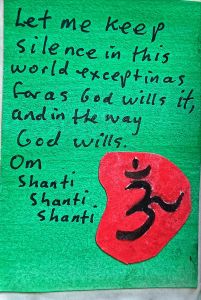 Let me keep
silence in this
world except in as
far as God wills it,
and in the way
God wills.
Om
Shanti
Shanti
Shanti
ॐ